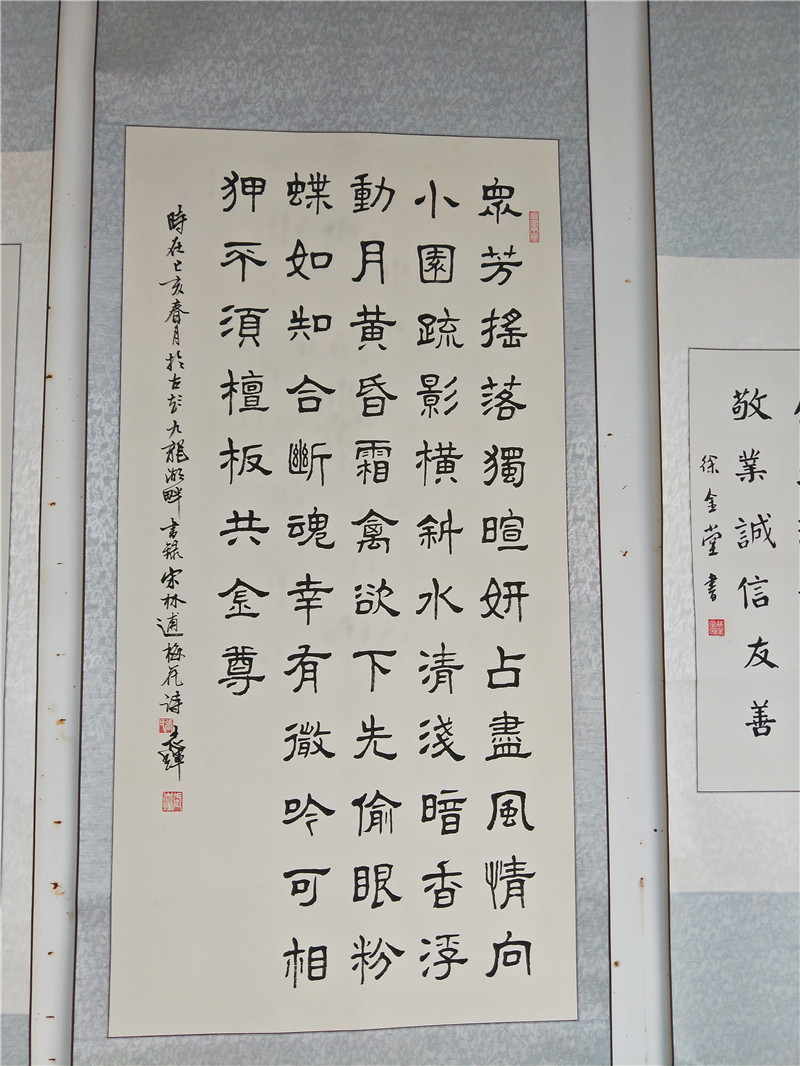 眾芳搖落獨暄妍占盡風情向
小園疏影橫斜水清淺暗香浮
動月黃昏霜禽欲下先偷眼粉
蝶如知合斷魂幸有微吟可相
狎不須檀板共金尊
時在己亥春月於古彭九龍湖畔書錄宋林逋梅花詩
敬業誠信友善
徐金堂書